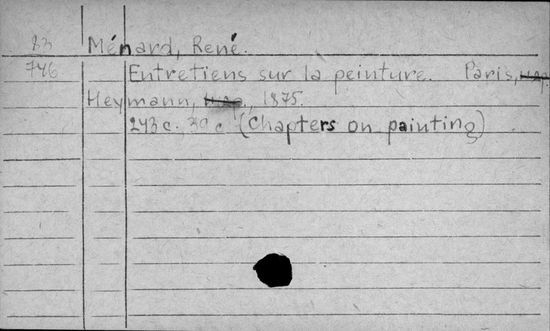 83 Ménard, René.
746 Entretiens sur la peinture. Paris,
Heymann, 1875.
243 c., 30 c. (Chapters on painting)